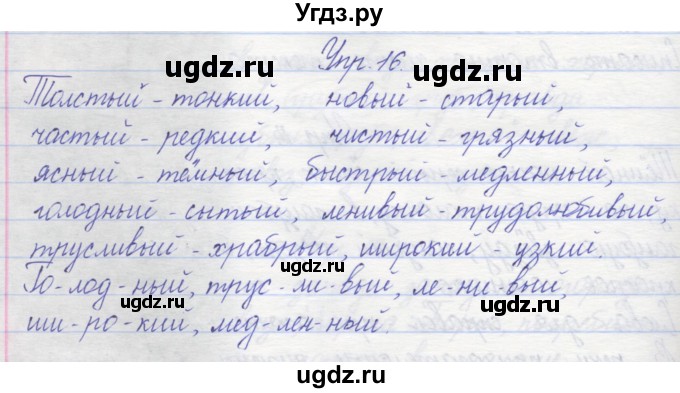 Угдз.ру
Упр. 16.
Толстый - тонкий, новый - старый,
частый - редкий, чистый - грязный,
ясный - тёмный, быстрый - медленный,
голодный - сытый, ленивый - трудолюбивый,
трусливый - храбрый, широкий узкий.
Го-лод-ный, трус-ли-вый, ле-ни-вый,
ши-ро-кий, мед-лен-ный
ugdz.ru
ugdz.ru
ugdz.ru
ugdz.ru
ugdz.ru
ugdz.ru
ugdz.ru